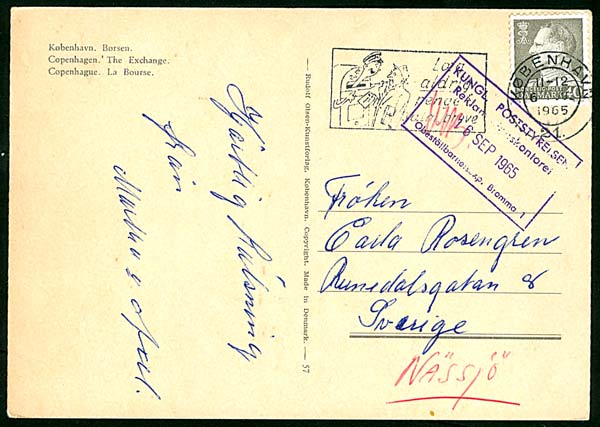 København. Børsen.
Copenhagen. The Exchange.
Copenhague. La Bourse.
Hjärtlig Hälsning
från
Martha o Axel.
— Rudolf Olsen-Kunstforlag, København. Copyright. Made in Denmark. — 57
Læg
aldrig
penge
breve
KØBENHAVN
1965
21.
DANMARK
40
KUNGL. POSTSTYRELSEN
Reklamationskontoret
6 SEP 1965
Obeställbarhetsexp. Bromma 1
Fröken
Carla Rosengren
Runedalsgatan 8
Sverige
NÄSSJÖ